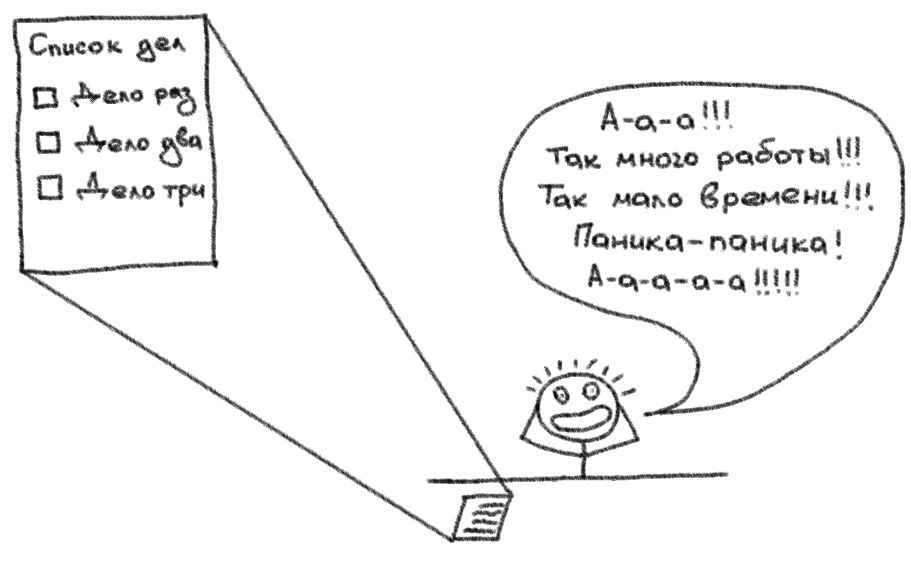 Список дел
Дело раз
Дело два
Дело три
А-а-а!!!
Так много работы!!!
Так мало времени!!!
Паника-паника!
А-а-а-а-а!!!!!